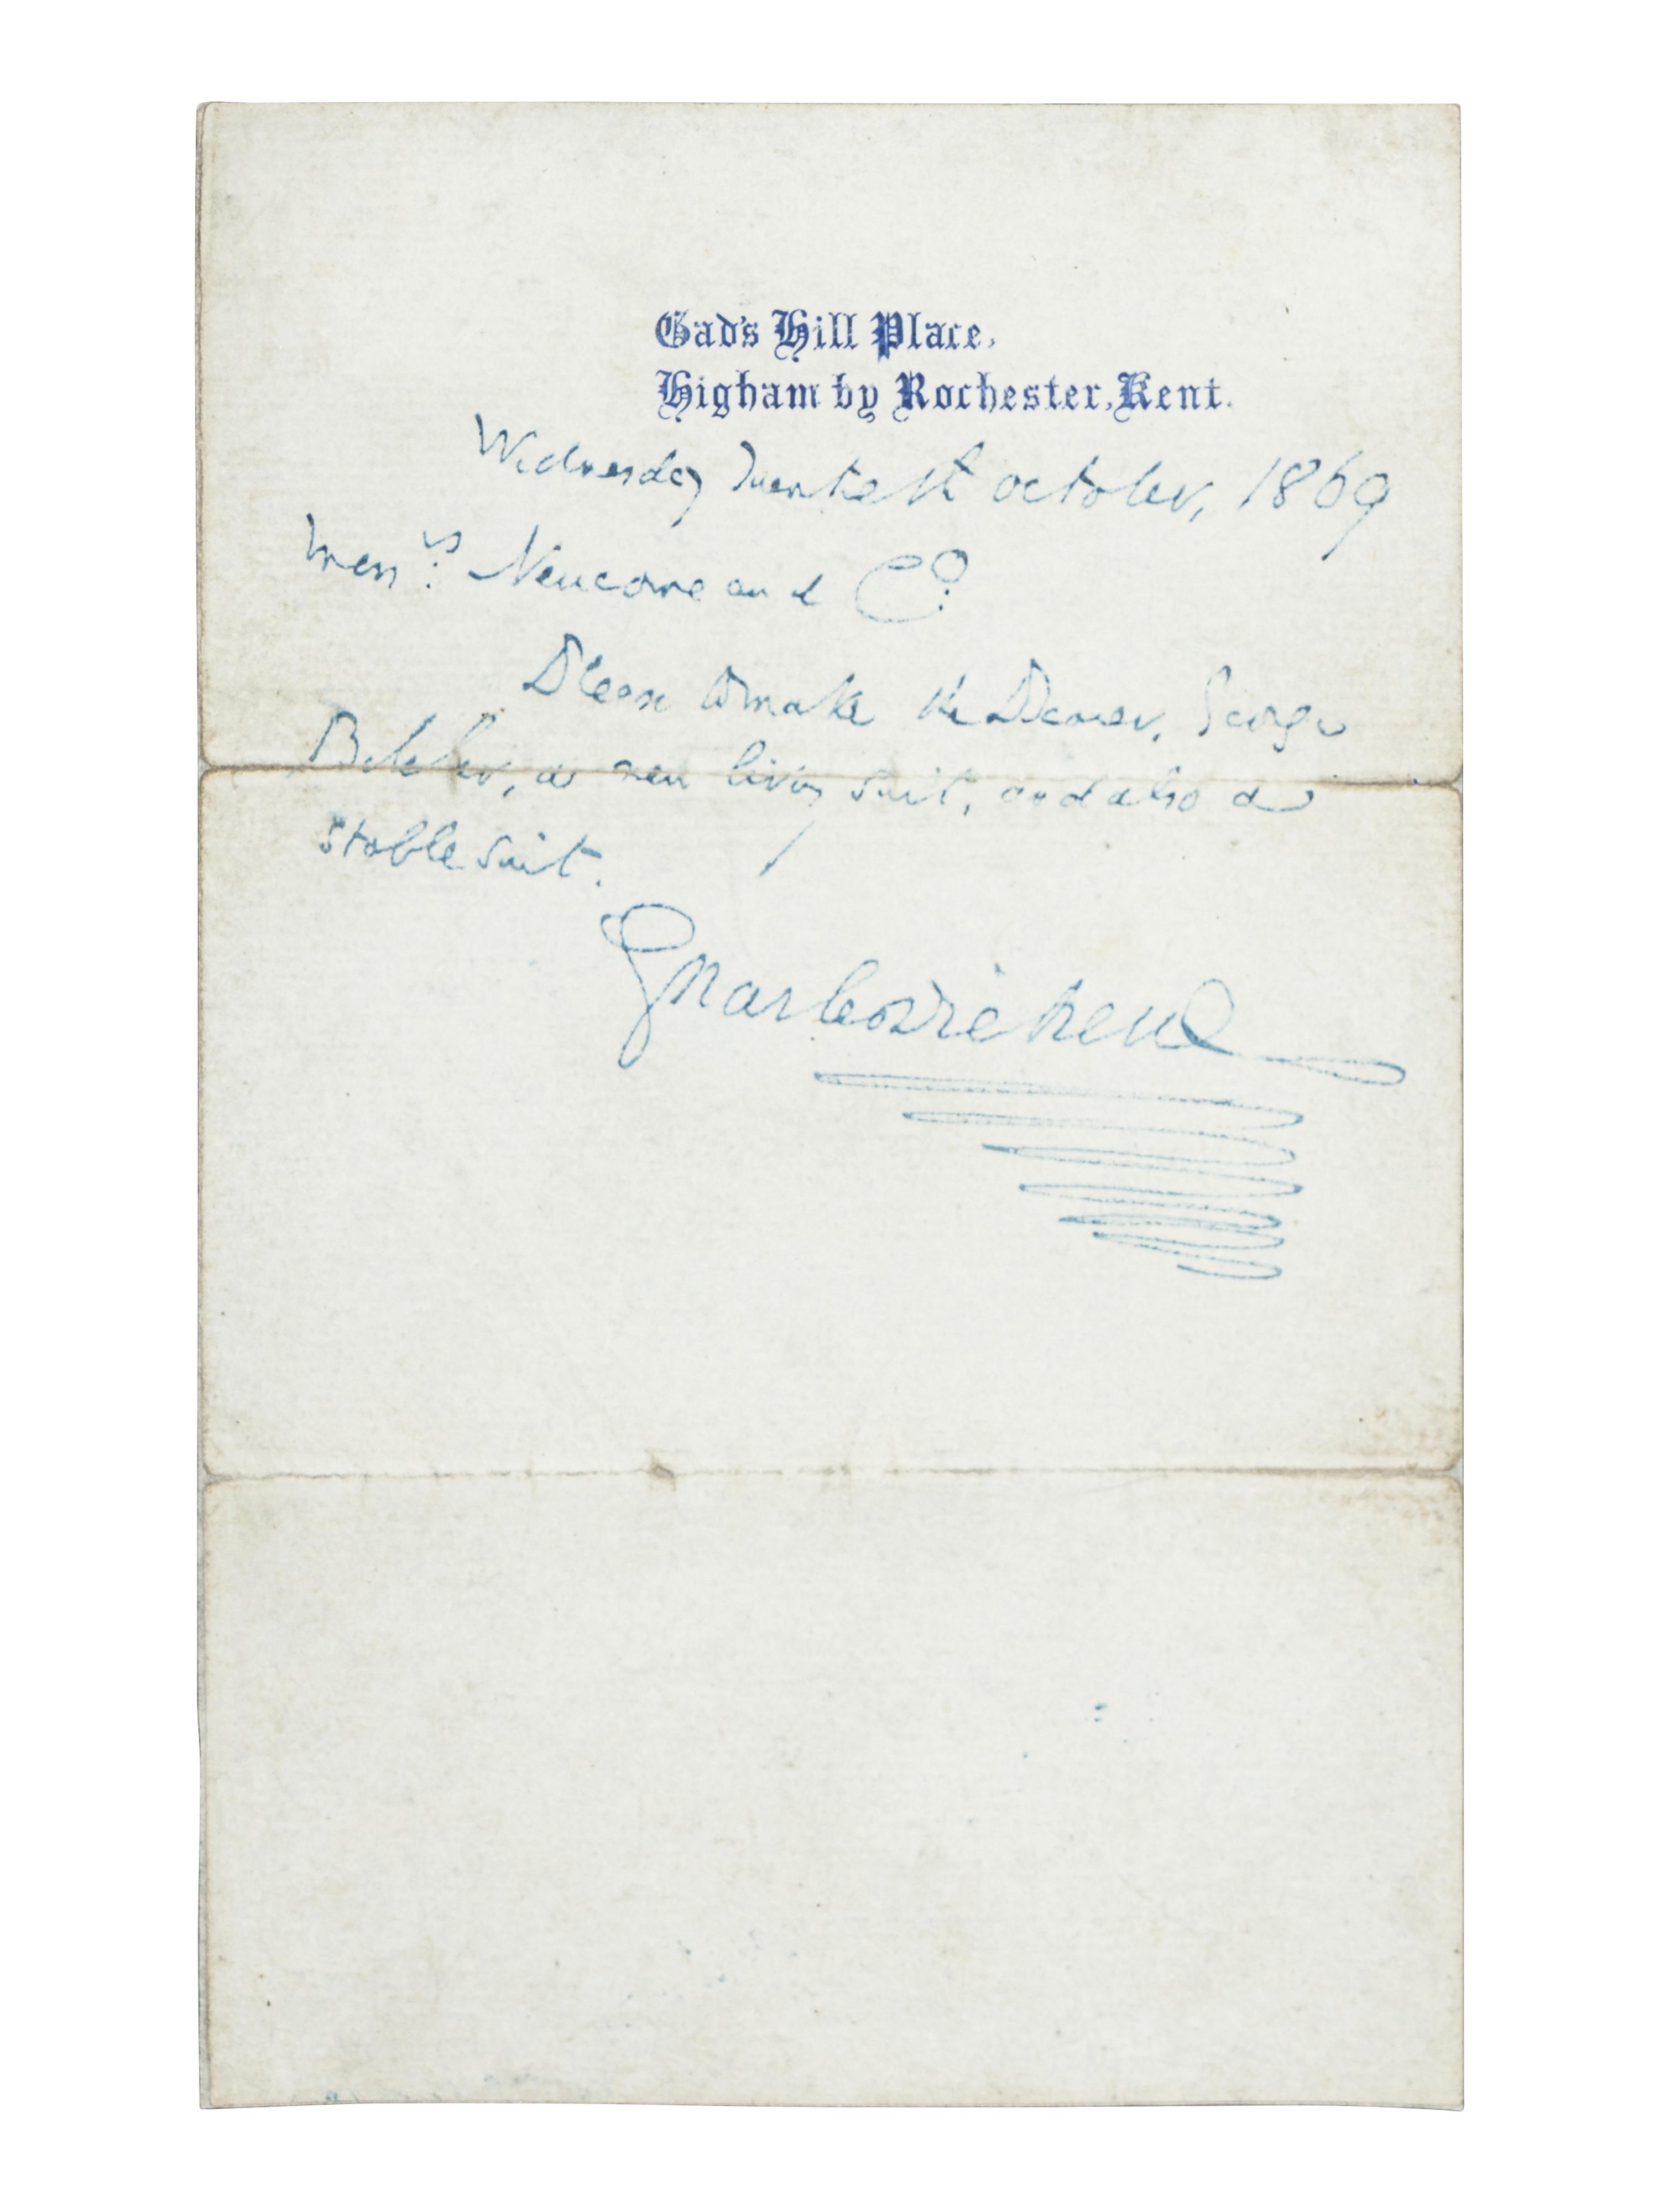 Gad's Hill Place,
Higham by Rochester, Kent.
Wednesday Twentieth October, 1869
Messrs. Newcome and Co.
Please to make the Bearer, George
Belcher, a new livery suit, and also a
stable suit.
Charles Dickens